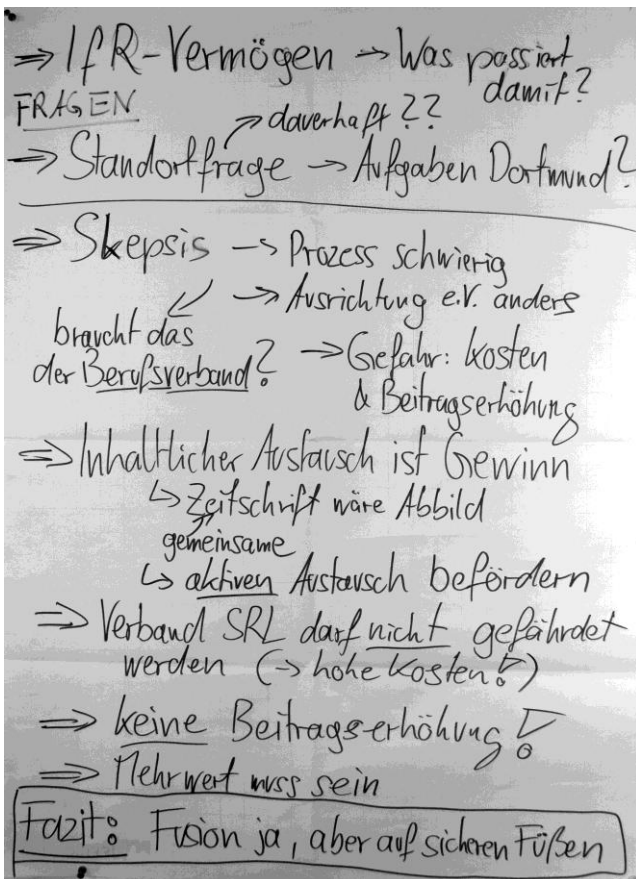 ⇒ IfR-Vermögen → Was passiert
damit?
FRAGEN
→ dauerhaft??
⇒ Standortfrage → Aufgaben Dortmund?
⇒ Skepsis → Prozess schwierig
→ Ausrichtung e.V. anders
braucht das
der Berufsverband?
→ Gefahr: Kosten
& Beitragserhöhung
⇒ Inhaltlicher Austausch ist Gewinn
↳ Zeitschrift wäre Abbild
gemeinsame
↳ aktiven Austausch befördern
⇒ Verband SRL darf nicht gefährdet
werden (→ hohe Kosten!)
⇒ keine Beitrags-erhöhung!
⇒ Mehrwert muss sein
Fazit: Fusion ja, aber auf sicheren Füßen